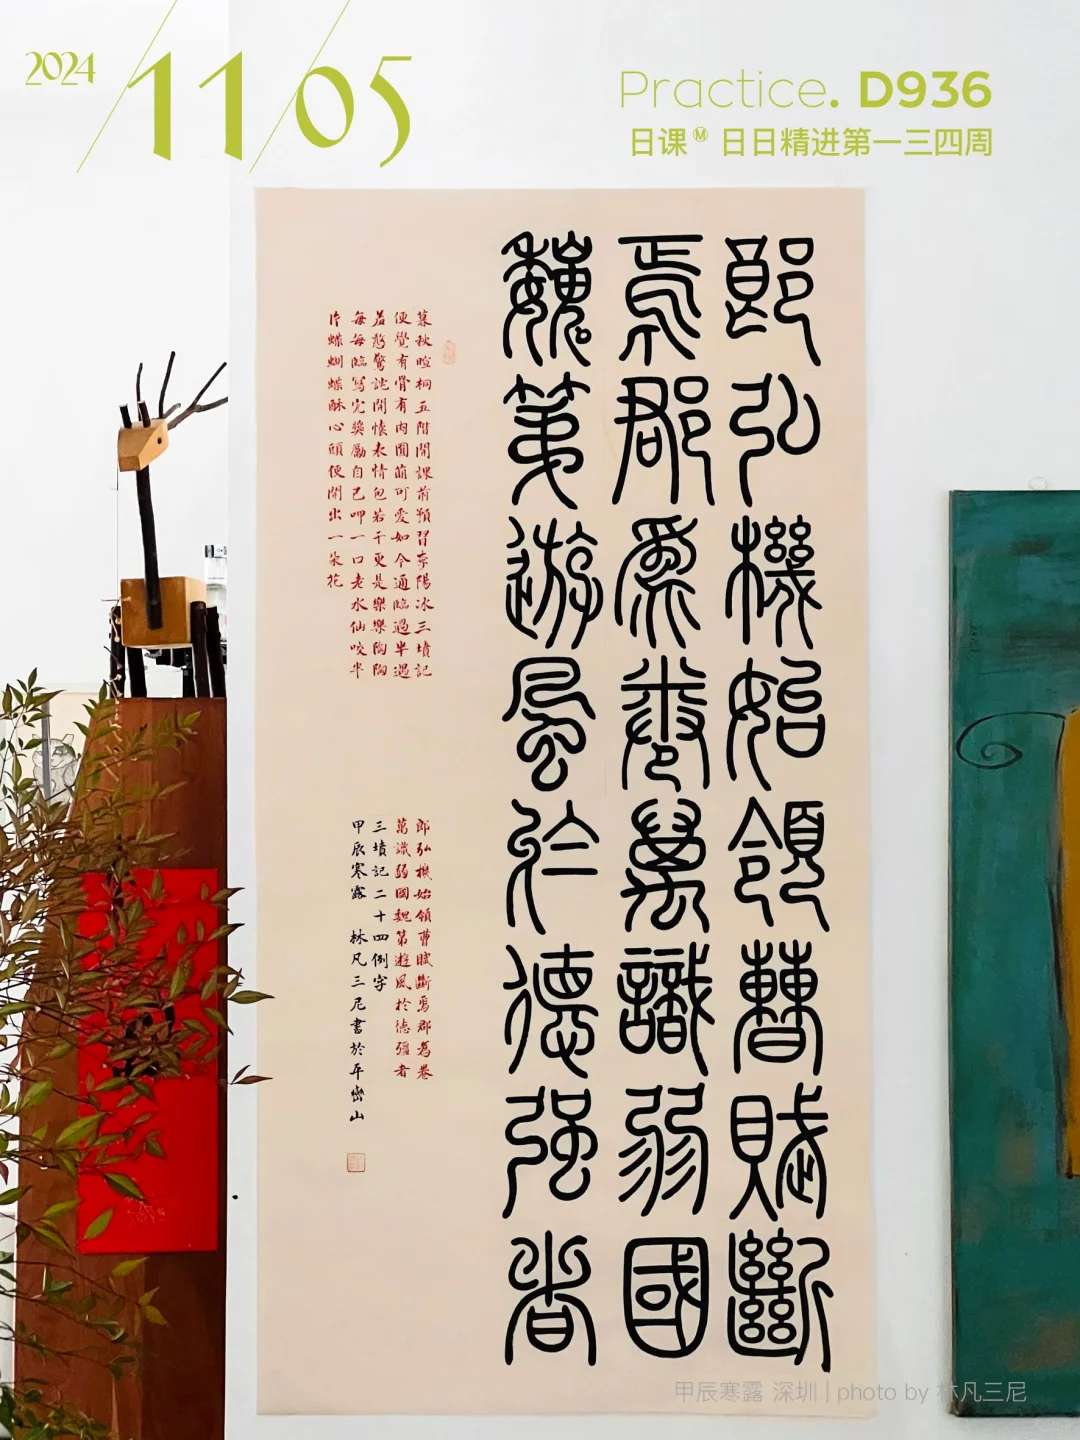 2024/11/05
Practice. D936
日课Ⓜ 日日精进第一三四周
郎弘機始領曹賦斷
焉郡爲卷萬識弱國
魏第遊風於德强者
暮秋暄桐五階開課前預習李陽冰三墳記
便覺有骨有肉圓萌可愛如今通臨過半遇
羞憨驚詫開懷表情包若干更是樂樂陶陶
每每臨寫完獎勵自己呷一口老水仙咬半
片蝶蝴蝶酥心頭便開出一朵花
郎弘機始領曹賦斷焉郡爲卷
萬識弱國魏第遊風於德彊者
三墳記二十四例字
甲辰寒露 林凡三尼書於平巒山
甲辰寒露 深圳 | photo by 林凡三尼